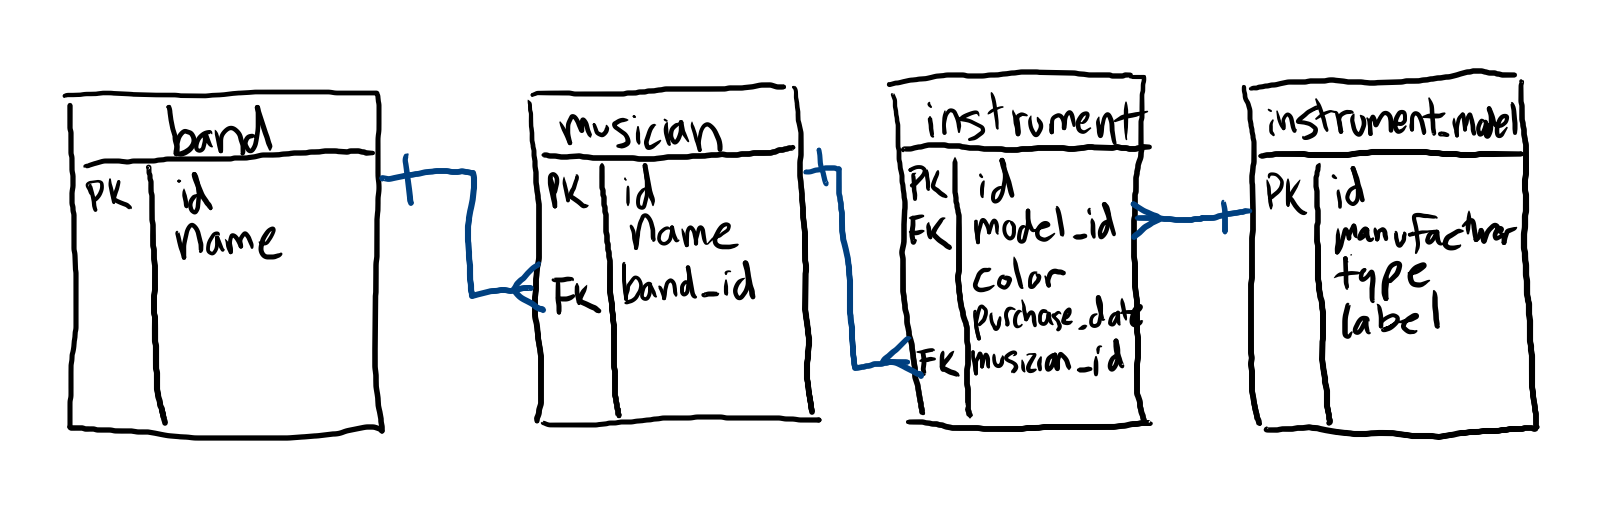 band
PK id
name
musician
PK id
name
FK band_id
instrument
PK id
FK model_id
color
purchase_date
FK musician_id
instrument_model
PK id
type
label